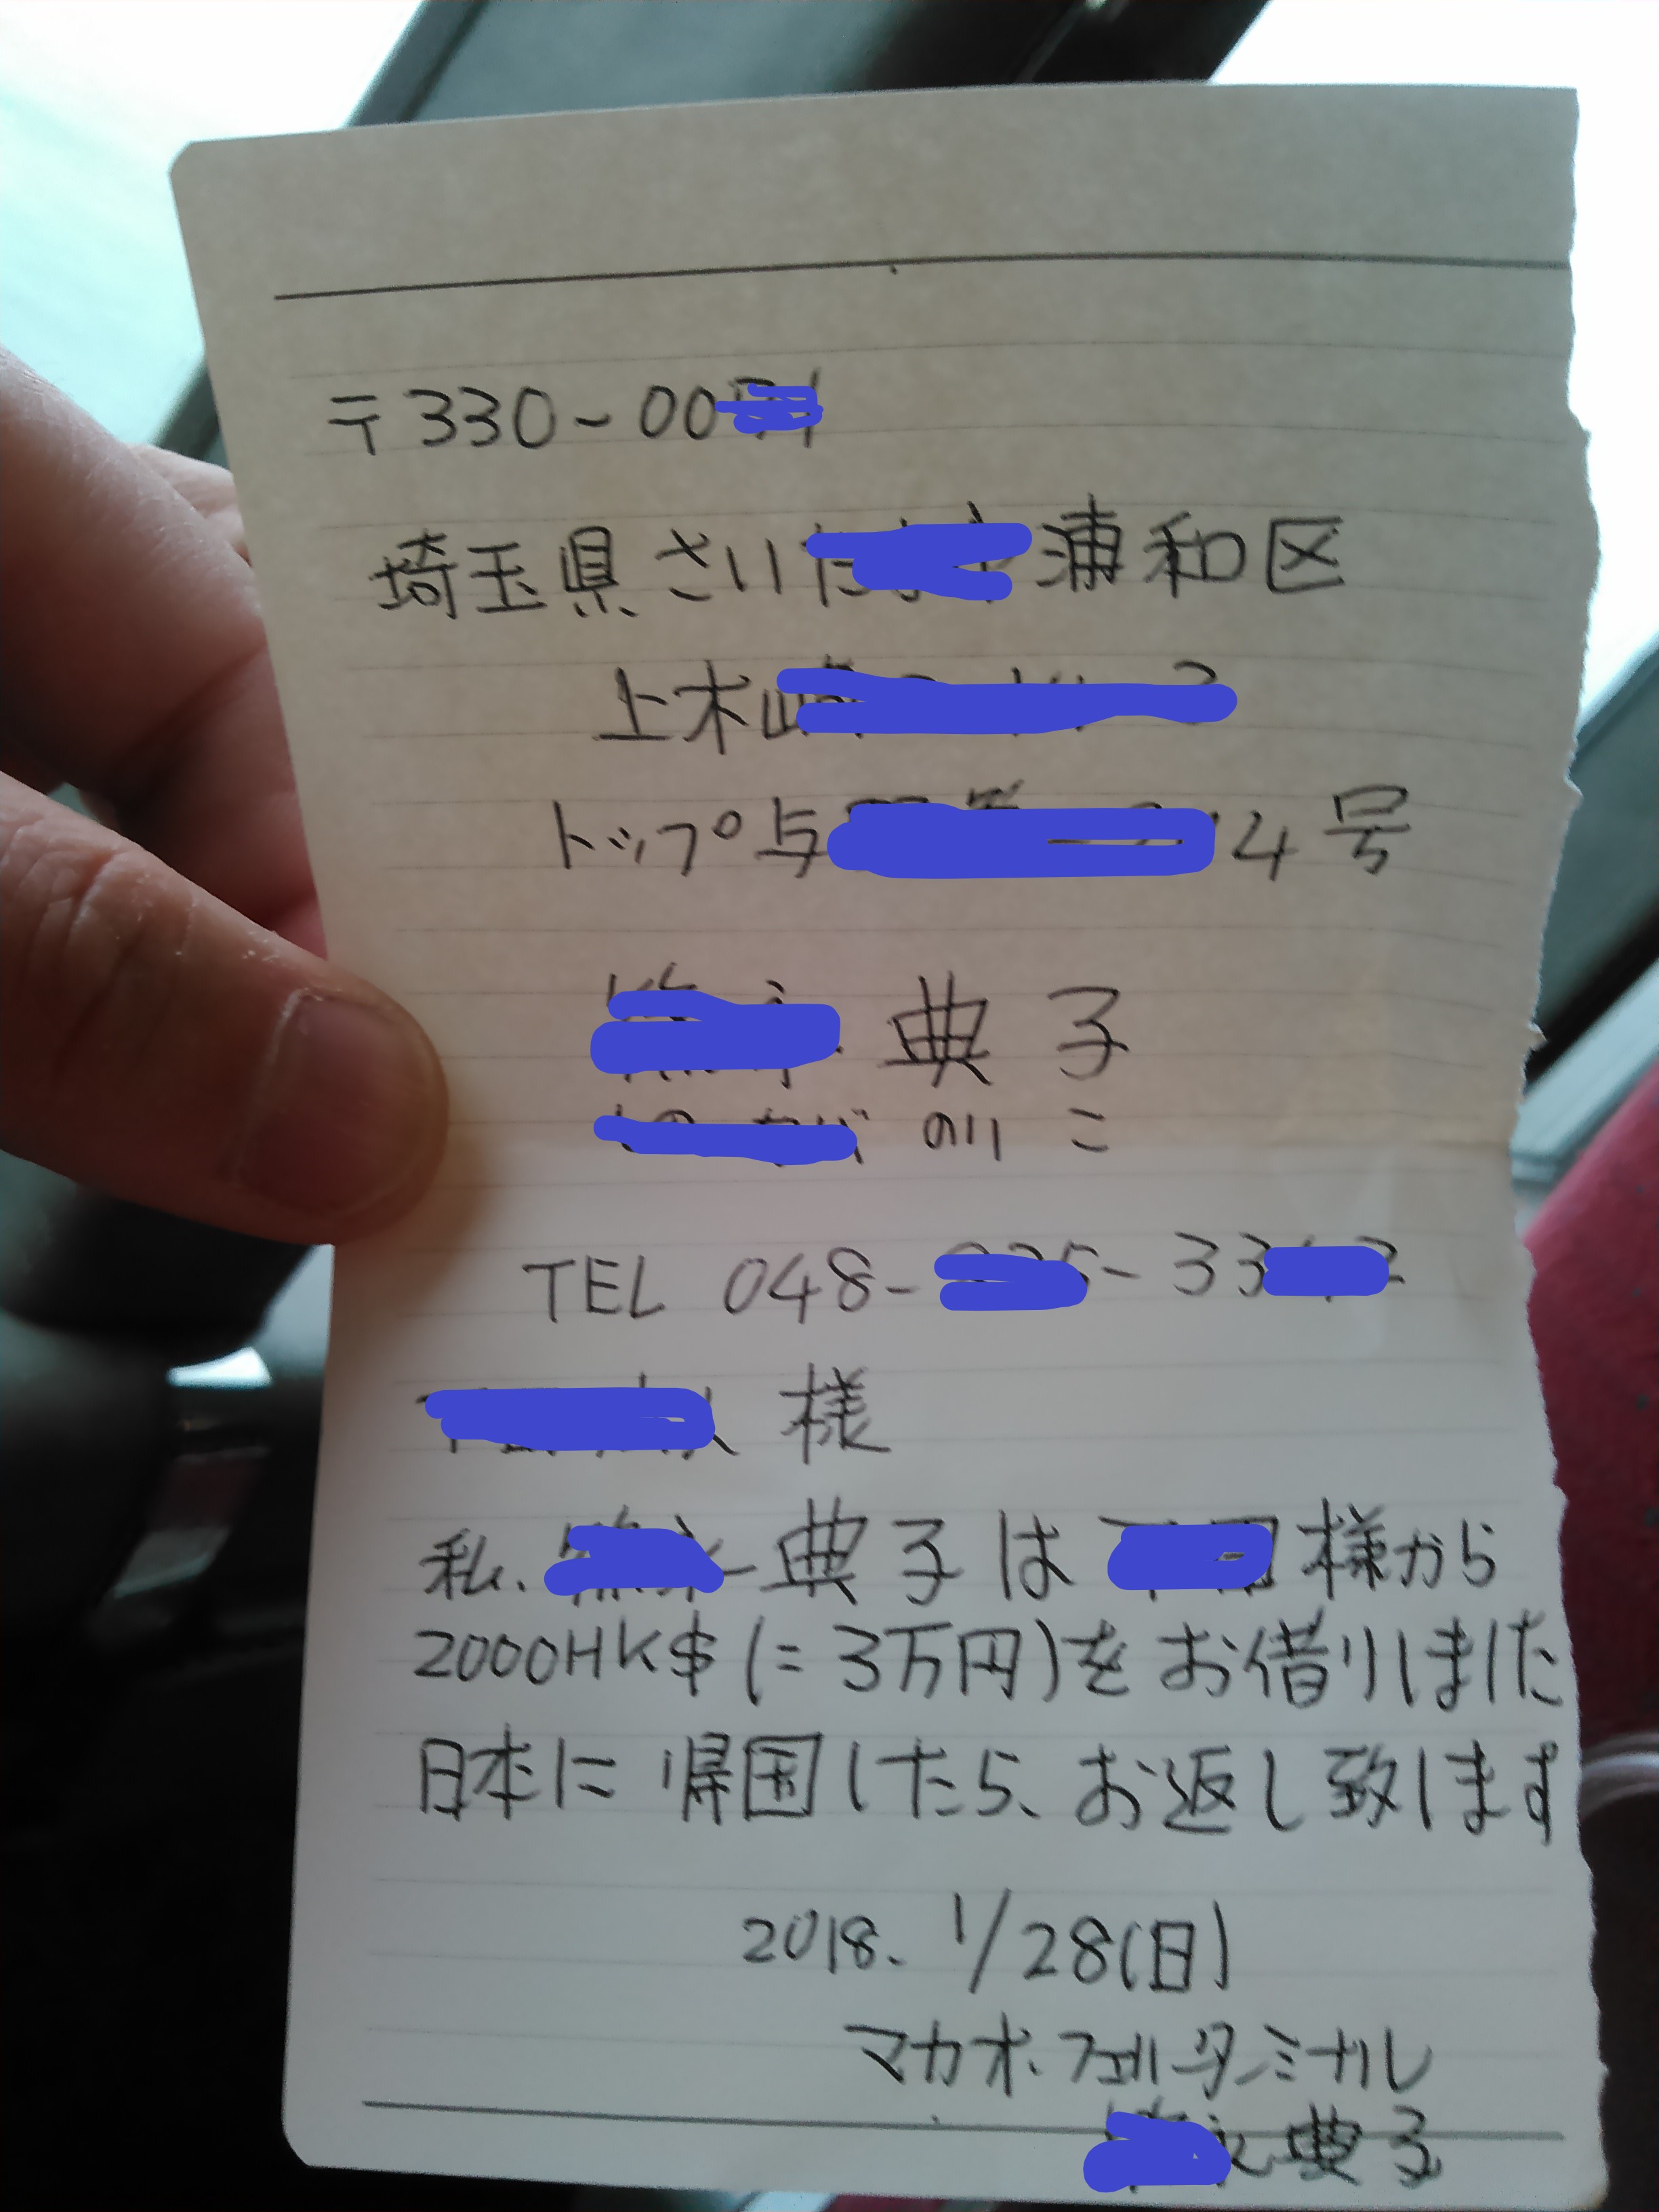 〒330-00
埼玉県さい 浦和区
上木
トップ与 4号
典子
のりこ
TEL 048- - 33
様
私、 典子は 様から
2000HK$(=3万円)をお借りしました
日本に帰国したら、お返し致します
2018. 1/28(日)
マカオ.フェリーターミナル
典子